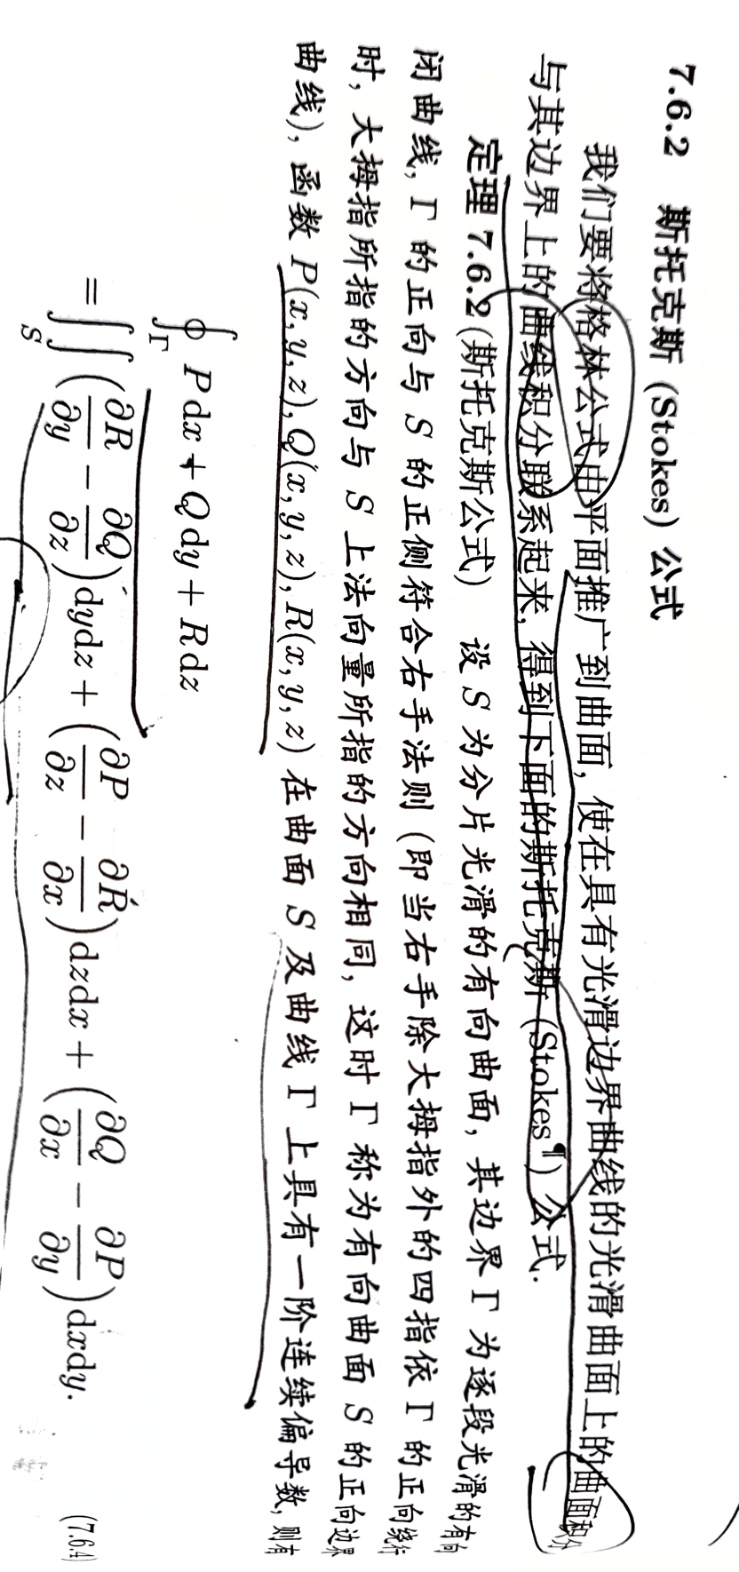 7.6.2 斯托克斯 (Stokes) 公式
我们要将格林公式由平面推广到曲面, 使在具有光滑边界曲线的光滑曲面上的曲面积分
与其边界上的曲线积分联系起来, 得到下面的斯托克斯 (Stokes¶) 公式.
定理 7.6.2 (斯托克斯公式) 设 S 为分片光滑的有向曲面, 其边界 Γ 为逐段光滑的有向
闭曲线, Γ 的正向与 S 的正侧符合右手法则 (即当右手除大拇指外的四指依 Γ 的正向绕行
时, 大拇指所指的方向与 S 上法向量所指的方向相同, 这时 Γ 称为有向曲面 S 的正向边界
曲线), 函数 P(x, y, z), Q(x, y, z), R(x, y, z) 在曲面 S 及曲线 Γ 上具有一阶连续偏导数, 则有
∮_Γ Pdx + Qdy + Rdz
= ∬_S (∂R/∂y − ∂Q/∂z)dydz + (∂P/∂z − ∂R/∂x)dzdx + (∂Q/∂x − ∂P/∂y)dxdy. (7.6.4)